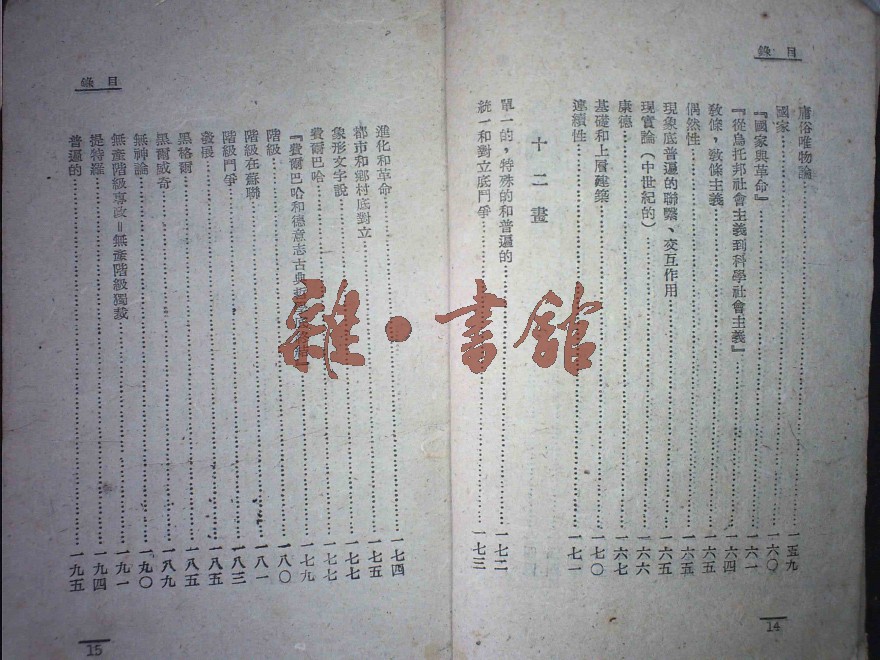 目錄
庸俗唯物論 一五九
國家 一六〇
『國家與革命』 一六一
『從烏托邦社會主義到科學社會主義』 一六四
敎條，敎條主義 一六五
偶然性 一六五
現象底普遍的聯繫、交互作用 一六五
現實論（中世紀的） 一六六
康德 一六七
基礎和上層建築 一七〇
連續性 一七一
十二畫
單一的，特殊的和普遍的 一七二
統一和對立底鬥爭 一七三
14
目錄
進化和革命 一七四
都市和鄉村底對立 一七五
象形文字說 一七七
費爾巴哈 一七七
『費爾巴哈和德意志古典 一七九
階級 一八〇
階級在蘇聯 一八一
階級鬥爭 一八三
發展 一八五
黑格爾 一八五
黑爾威奇 一八九
無神論 一九〇
無產階級專政＝無產階級獨裁 一九一
提特羅 一九四
普遍的 一九五
15
雜·書館